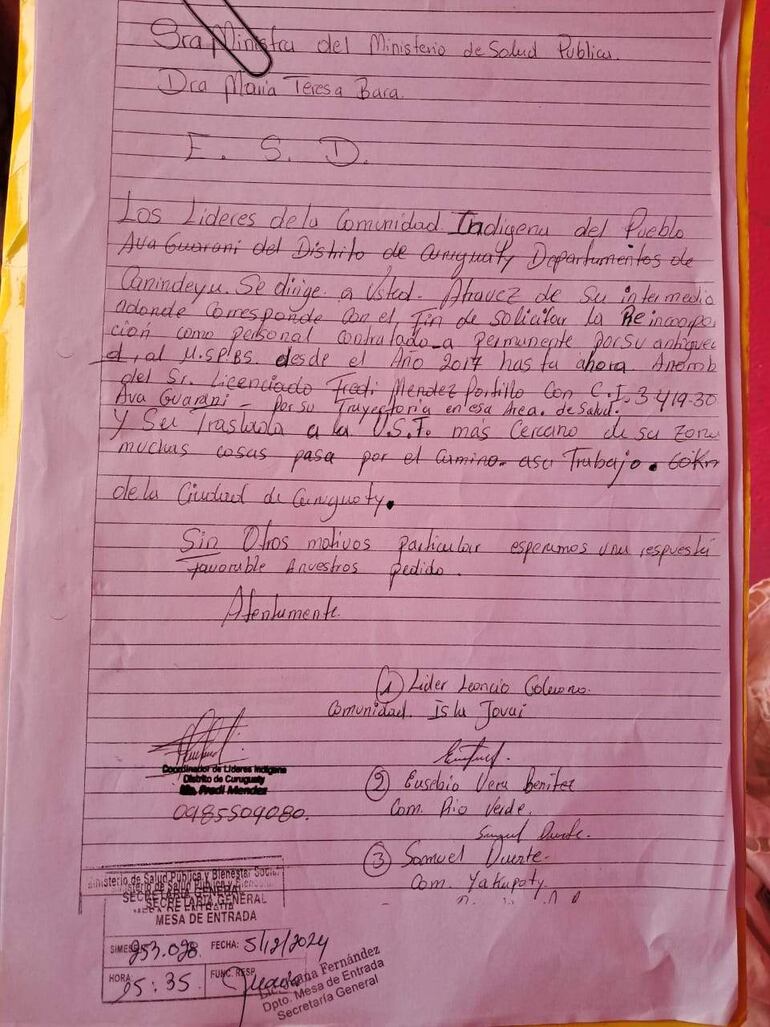 Sra Ministra del Ministerio de Salud Publica.
Dra Maria Teresa Bara.
E. S. D.
Los Lideres de la Comunidad Indigena del Pueblo
Ava Guarani del Distrito de Curuguaty Departamentos de
Canindeyu. Se dirige a Usted. Atravez de Su intermedio
adonde Corresponde con el fin de solicitar la Reincorpo
cion como personal Contratado a permanente por su antigued
d, al M.SP.BS. desde el Año 2017 hasta ahora. Anomb
del Sr. Licenciado Fredi Mendez Portillo Con C.I. 3.419.30
Ava Guarani - por su Trayectoria en esa Area. de Salud.
Y Su Traslado a la U.S.F. más Cercano de su Zona
muchas cosas pasa por el Camino. asu Trabajo. 60Km
de la Ciudad de Curuguaty.
Sin Otros motivos particular esperamos una respuesta
favorable Anuestros pedido.
Atentamente.
① Lider Leoncio
Comunidad. Isla Jovai
Coordinador de Líderes Indígena
Distrito de Curuguaty
Fredi Mendez
0985509080.
② Eusebio Vera Benitez
Com. Rio Verde.
Samuel Duarte.
③ Samuel Duerte.
Com. Yakapoty
Ministerio de Salud Pública y Bienestar Social
SECRETARIA GENERAL
MESA DE ENTRADA
SIMESE 253.028 FECHA: 5/12/2024
HORA: 25:35 FUNC. RESP.
Fernández
Dpto. Mesa de Entrada
Secretaría General